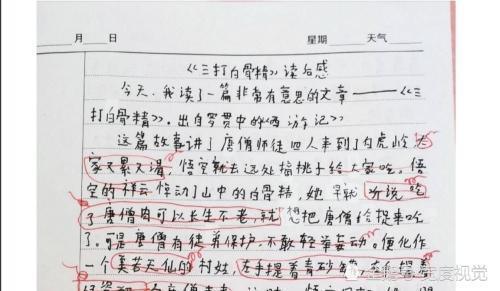 月 日 星期 天气
《三打白骨精》读后感
今天，我读了一篇非常有意思的文章——《三
打白骨精》。出自罗贯中的《西游记》
这篇故事讲了唐僧师徒四人来到了白虎岭大
家又累又渴，悟空就去远处摘桃子给大家吃。悟
空的祥云惊动了山中的白骨精，她早就听说吃
了唐僧肉可以长生不老，就想把唐僧给捉来吃
了。可是唐僧有徒弟保护，不敢轻举妄动。便化作
一个美若天仙的村姑，左手提着青砂罐